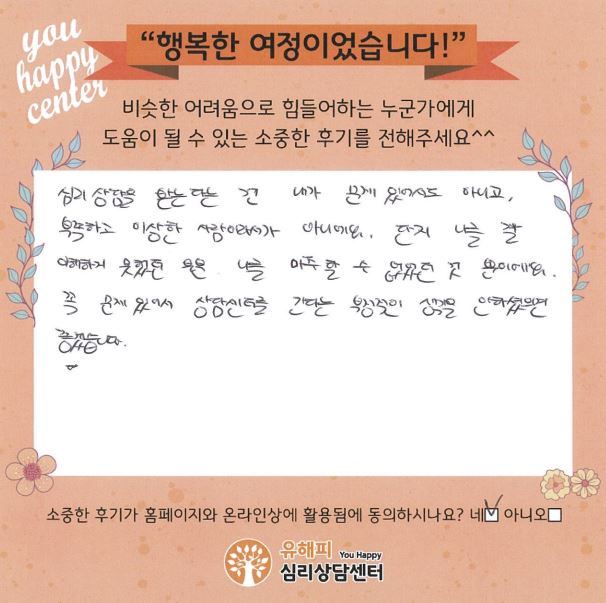 you
happy
center
“행복한 여정이었습니다!”
비슷한 어려움으로 힘들어하는 누군가에게
도움이 될 수 있는 소중한 후기를 전해주세요^^
심리 상담을 받는다는 건 내가 문제 있어서도 아니고,
부족하고 이상한 사람이라서가 아니에요. 단지 나를 잘
이해하지 못했던 나를 마주 할 수 없었던 것 뿐이에요.
꼭 문제 있어서 상담센터를 간다는 부정적인 생각을 안하셨으면
좋겠습니다.
소중한 후기가 홈페이지와 온라인상에 활용됨에 동의하시나요? 네 아니오
유해피 You Happy
심리상담센터